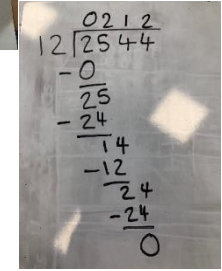 0212
12 2544
- 0
25
- 24
14
- 12
24
- 24
0